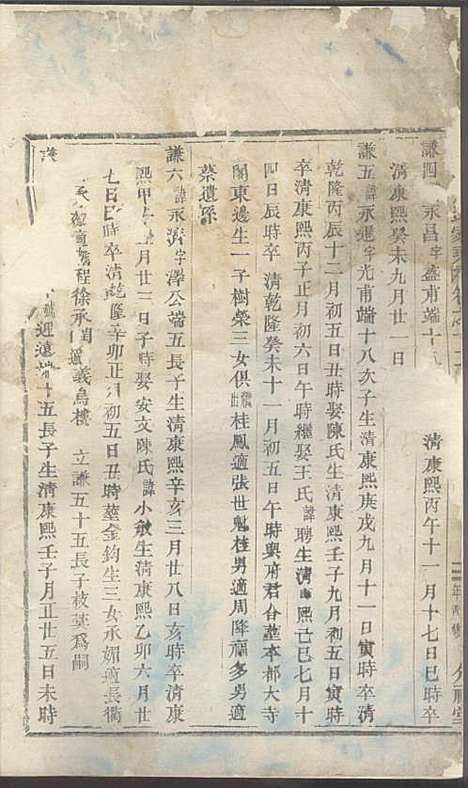 謙四 永昌字盛甫端十 清康熙丙午十一月十七日巳時卒
清康熙癸未九月廿一日
謙五諱永進字光甫端十八次子生清康熙庚戌九月十一日寅時卒清
乾隆丙辰十二月初五日丑時娶陳氏生清康熙壬子九月初五日寅時
卒清康熙丙子正月初六日午時繼娶王氏諱聘生清 熙己巳七月十
四日辰時卒清乾隆癸未十一月初五日午時與府君合塟本都大寺
閣東邊生一子樹榮三女俱繼出桂鳳適張世魁桂男適周降福多男適
蔡遺孫
謙六諱永濟字澤公端五長子生清康熙辛亥三月廿八日亥時卒清康
熙甲 月廿二日子時娶安文陳氏諱小敏生清康熙乙卯六月廿
七日巳時卒清乾隆辛卯正月初五日丑時塟金鈎生三女永媚適長衢
程徐承 適義烏樓 立謙五十五長子枝葉為嗣
迎遠端十五長子生清康熙壬子月正廿五日未時